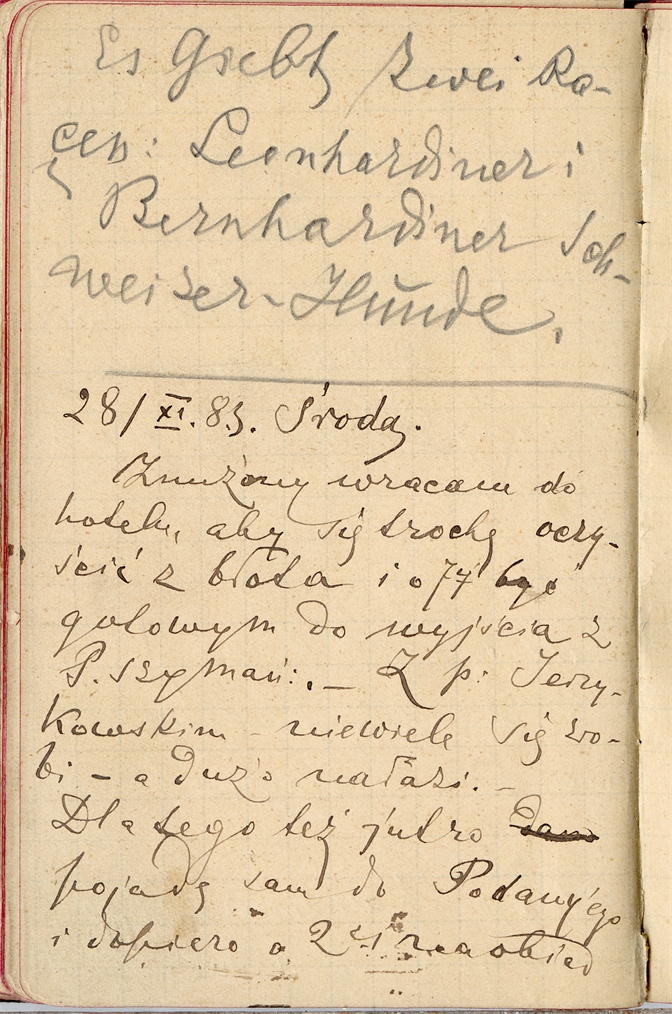 Es Giebt zwei Ra-
cen: Leonhardiner i
Bernhardiner Sch-
weizer-Hunde.
28/XI.83. Środa.
Znużony wracam do
hotelu, aby się trochę oczy-
ścić z błota i o 7¼ być
gotowym do wyjścia z
P. Szymań:. — Z p. Jerzy-
kowskim niewiele się zro-
bi — a dużo nałazi. —
Dla tego też jutro
pojadę sam do Podany'ego
i dopiero o 2éj na obiad